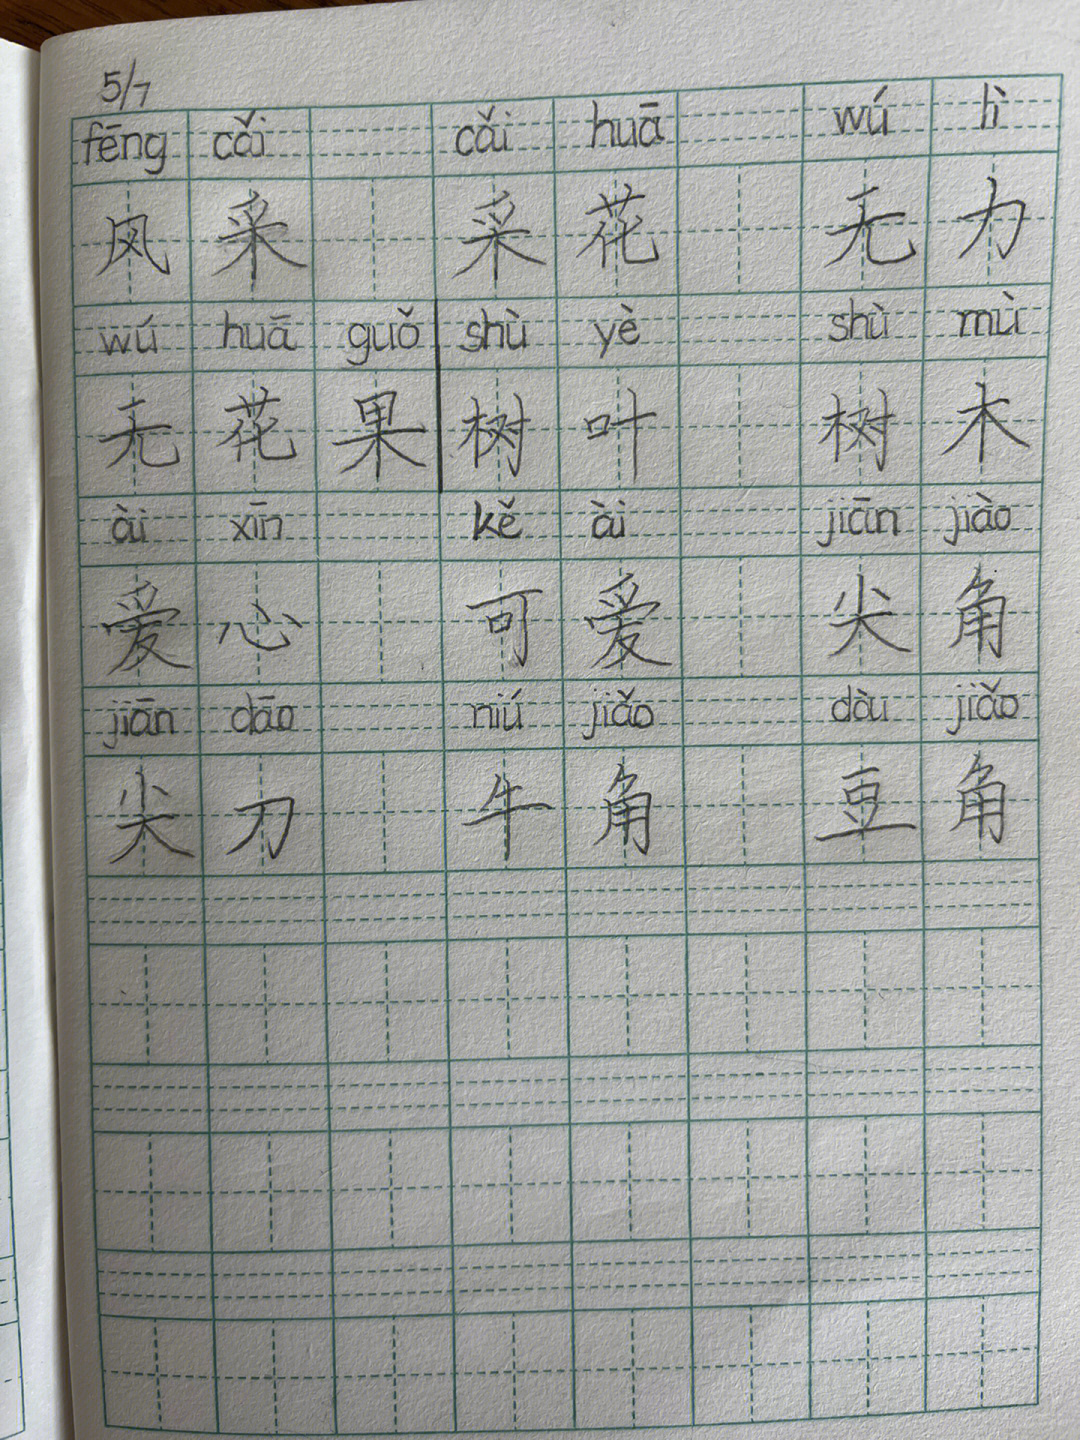 5/7
fēng cǎi cǎi huā wú lì
风 采 采 花 无 力
wú huā guǒ shù yè shù mù
无 花 果 树 叶 树 木
ài xīn kě ài jiān jiào
爱 心 可 爱 尖 角
jiān dāo niú jiǎo dòu jiǎo
尖 刀 牛 角 豆 角